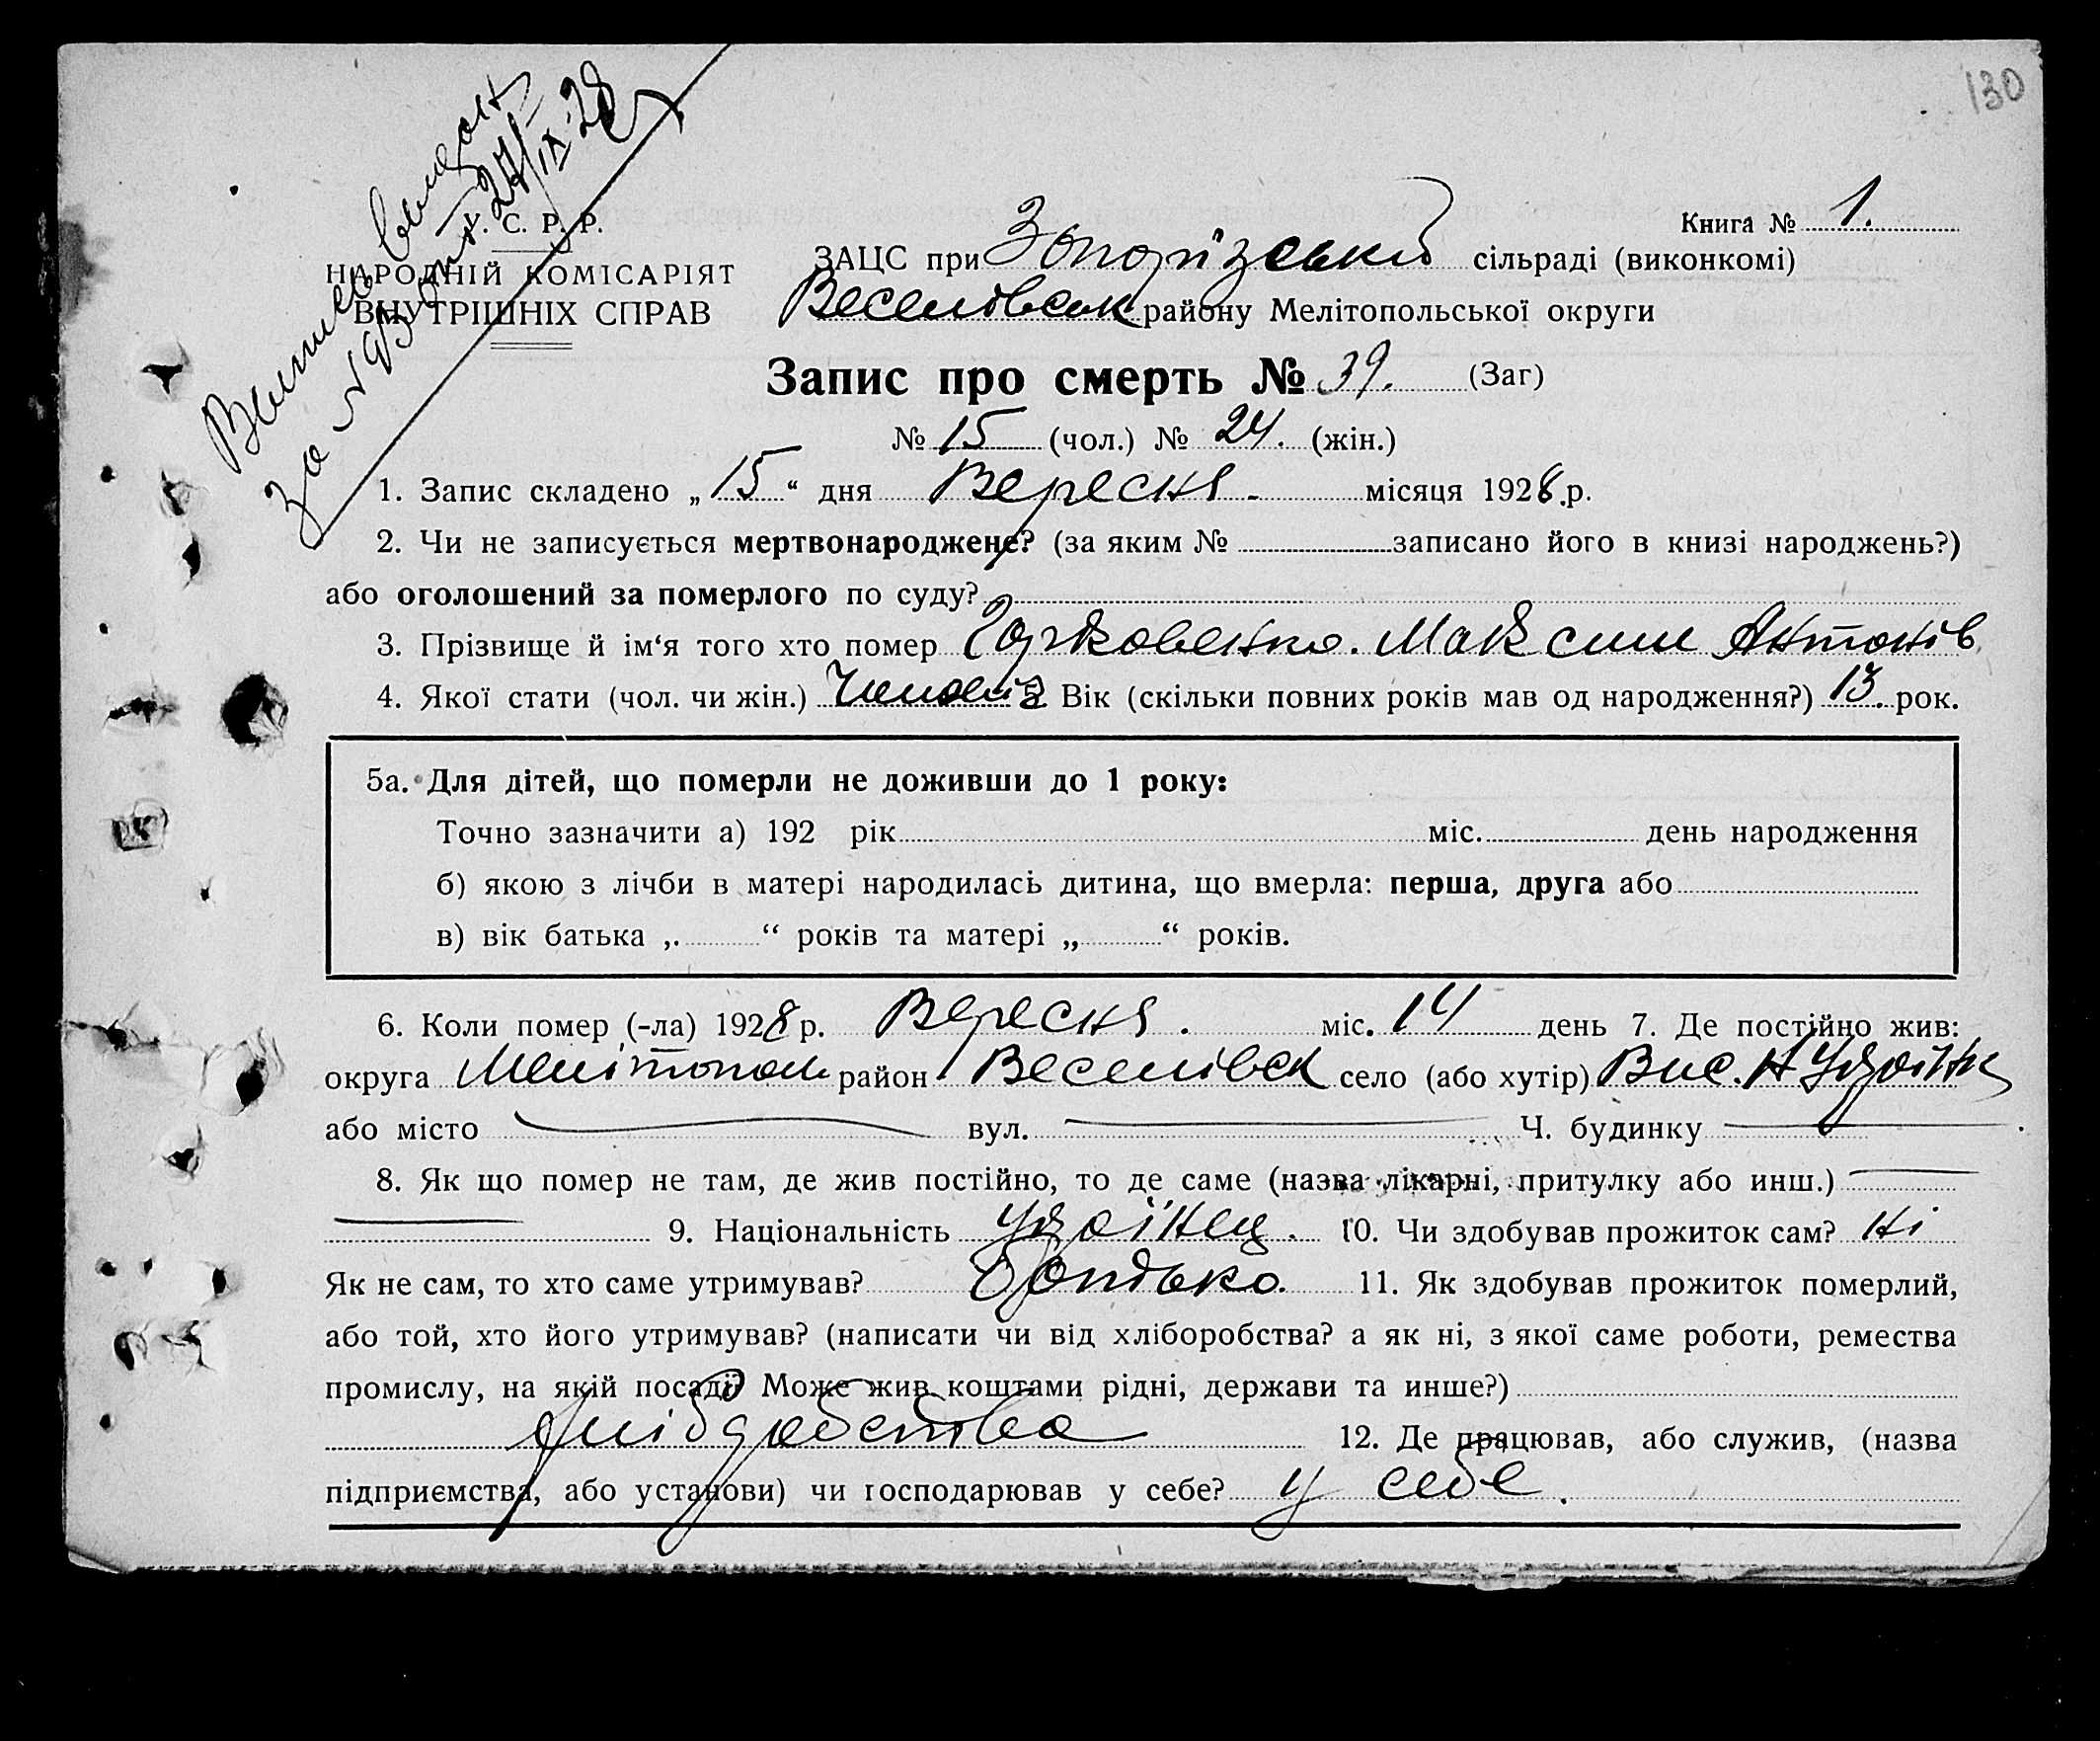 130
Випись видана
за № 93 27/IX-28
У. С. Р. Р.
НАРОДНІЙ КОМІСАРІЯТ
ВНУТРІШНІХ СПРАВ
Книга № 1.
ЗАЦС при Запорізській сільраді (виконкомі)
Веселівськ району Мелітопольської округи
Запис про смерть № 39. (Заг)
№ 15 (чол.) № 24. (жін.)
1. Запис складено „15“ дня Вересня місяця 1928.р.
2. Чи не записується мертвонароджене? (за яким № записано його в книзі народжень?)
або оголошений за померлого по суду?
3. Прізвище й ім‘я того хто помер Горковенко. Максим Антонів
4. Якої стати (чол. чи жін.) Чоловіч 5. Вік (скільки повних років мав од народження?) 13. рок.
5а. Для дітей, що померли не доживши до 1 року:
Точно зазначити а) 192 рік міс. день народження
б) якою з лічби в матері народилась дитина, що вмерла: перша, друга або
в) вік батька „ “ років та матері „ “ років.
6. Коли помер (-ла) 1928 р. Вересня. міс. 14 день 7. Де постійно жив:
округа Мелітополь район Веселівск село (або хутір) Вис. Україна
або місто вул. Ч. будинку
8. Як що помер не там, де жив постійно, то де саме (назва лікарні, притулку або инш.)
9. Національність Украінец. 10. Чи здобував прожиток сам? Ні
Як не сам, то хто саме утримував? Батько. 11. Як здобував прожиток померлий,
або той, хто його утримував? (написати чи від хліборобства? а як ні, з якої саме роботи, ремества
промислу, на якій посаді? Може жив коштами рідні, держави та инше?)
хліборобства 12. Де працював, або служив, (назва
підприємства, або установи) чи господарював у себе? у себе.